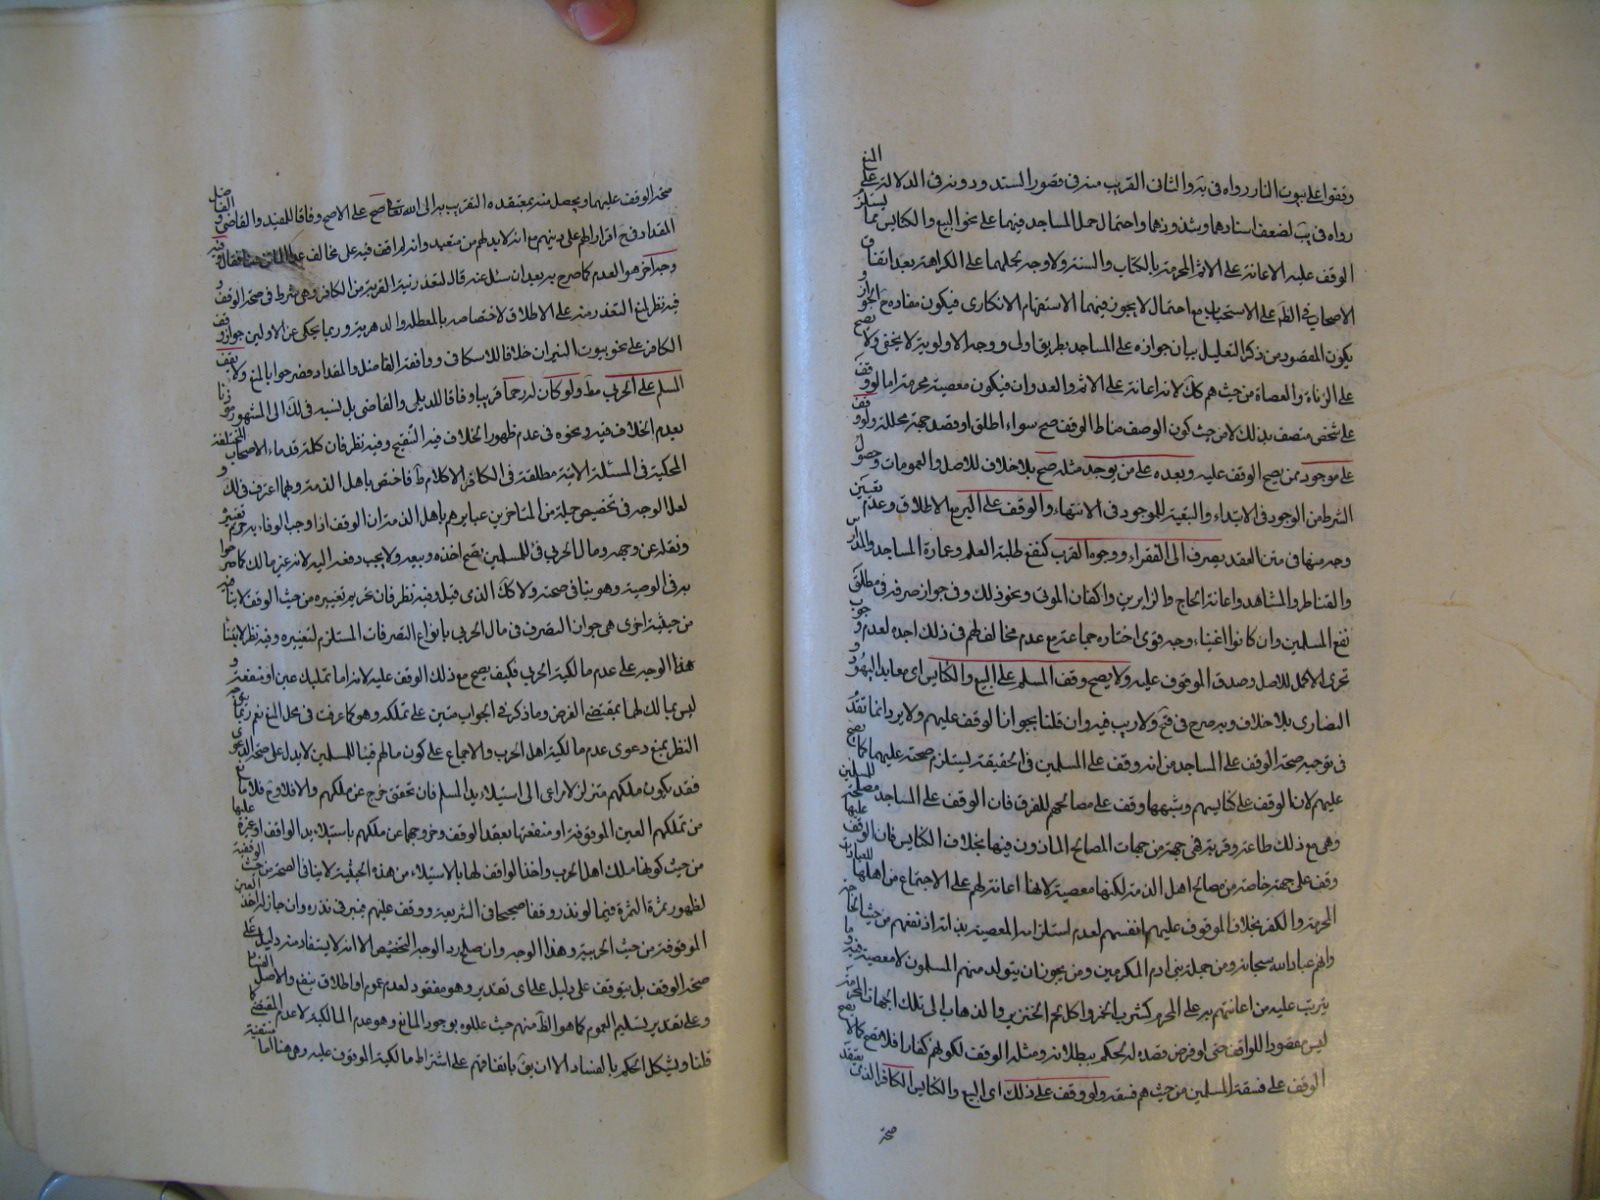 وقفوا على بيوت النار رواه في يه والثاني القريب منه في قصور السند ودونه في الدلالة على
رواه في يب لضعف اسنادهما وشذوذهما واحتمال حمل المساجد فيهما على نحو البيع والكنايس مما يستلزم
الوقف عليه الاعانة على الاثم المحرمة بالكتاب والسنة ولا وجه لحملهما على الكراهة بعد اتفاق
الاصحاب في الظ على الاستحباب مع احتمال لا يجوز فيهما الاستفهام الانكاري فيكون مفاده ح الجواز و
يكون المقصود من ذكر التعليل بيان جوازه على المساجد بطريق اولى ووجه الاولوية لا يخفى ولا يصح
على الزناة والعصاة من حيث هم كك لانه اعانة على الاثم والعدوان فيكون معصية محرمة اما لو وقف
على شخص متصف بذلك لا من حيث كون الوصف مناط الوقف صح سواء اطلق او قصد جهة محللة ولو وقف
على موجود ممن يصح الوقف عليه وبعده على من يوجد مثله صح بلا خلاف للاصل والعمومات وحصول
الشرط من الوجود في الابتداء والتبعية للموجود في الانتهاء والوقف على البر مع الاطلاق وعدم تعيين
وجه منها في متن العقد يصرف الى الفقراء ووجوه القرب كنفع طلبة العلم وعمارة المساجد والمدارس
والقناطر والمشاهد واعانة الحاج والزايرين واكفان الموتى ونحو ذلك وفي جواز صرفه في مطلق
نفع المسلمين وان كانوا اغنياء وجه قوي اختاره جماعة مع عدم مخالف لهم في ذلك اجده لعدم وجوب
تحرى الاكمل للاصل وصدق الموقوف عليه ولا يصح وقف المسلم على البيع والكنايس اي معابد اليهود و
النصارى بلا خلاف وبه صرح في فتح ولا ريب فيه وان قلنا بجواز الوقف عليهم ولا يرد انما تقدم
في توجيه صحة الوقف على المساجد من انه وقف على المسلمين في الحقيقة ليستلزم صحته عليهما كما يصح
عليهم لان الوقف على كنايسهم وشبهها وقف على مصالحهم للفرق فان الوقف على المساجد مصلحة للمسلمين
وهي مع ذلك طاعة وقربة فهي جهة من جهات المصالح الماذون فيها بخلاف الكنايس فان الوقف عليها
وقف على جهة خاصة من مصالح اهل الذمة لكنها معصية لانها اعانة لهم على الاجتماع من اهلها للعبادات
المحرمة والكفر بخلاف الموقوف عليهم انفسهم لعدم استلزامه المعصية بذاته اذ نفعهم من حيث الحاجة
وانهم عباد الله سبحانه ومن جملة بني ادم المكرمين ومن يجوز ان يتولد منهم المسلمون لا معصية فيه وما
يترتب عليه من اعانتهم به على المحرم كشرب الخمر واكل لحم الخنزير والذهاب الى تلك الجهات المحرمة
ليس مقصودا للواقف حتى لو فرض قصده له لحكم ببطلانه ومثله الوقف لكونهم كفارا فلا يصح كما لا يصح
الوقف على فسقة المسلمين من حيث هم فسقة ولو وقف على ذلك اي البيع والكنايس الكافر الذي يعتقد
صحة
صحة الوقف عليهما ويحصل منه بمعتقده التقرب به الى الله تعالى صح على الاصح وفاقا للمفيد والقاضي والفاضل
المقداد في ح اقرارا لهم على دينهم مع انه لا بد لهم من متعبد وانه لم اقف فيه على مخالف هنا فقال فيه
وجه اخر هو العدم كما صرح به بعد ان سئل عنه قال لتعذر نية القربة من الكافر وهي شرط في صحة الوقف و
فيه نظر لمنع التعذر منه على الاطلاق لاختصاصه بالمعطلة والدهرية وربما يحكى عن الاولين جواز وقف
الكافر على نحو بيوت النيران خلافا للاسكافي ووافقه الفاضل والمقداد فصرحوا بالمنع ولا يقف
المسلم على الحربي مط ولو كان له رحما قريبا وفاقا للديلمي والقاضي بل نسبه في لك الى المشهور مؤذنا
بعدم الخلاف فيه ونحوه في عدم ظهور الخلاف فيه التنقيح وفيه نظر فان كلمة قدماء الاصحاب المختلفة
المحكية في المسئلة الاتية مطلقة في الكافر الا كلام ط فاختص باهل الذمة ولهما اعترف في لك و
لعل الوجه في تخصيص جملة من المتاخرين عبايرهم باهل الذمة ان الوقف اذا وجب الوفاء به حرم تغييره
ونقله عن وجهه ومال الحربي فئ للمسلمين يصح اخذه وبيعه ولا يجب دفعه اليه لانه غير مالك كما صرحوا
به في الوصية وهو ينافي صحته ولا كك الذمي قيل وفيه نظر فان تحريم تغييره من حيث الوقف لا ينافيه
من حيثية اخرى هي جواز التصرف في مال الحربي بانواع التصرفات المستلزم لتغييره وفيه نظر لابتناء
هذا الوجه على عدم مالكية الحربي فكيف يصح مع ذلك الوقف عليه لانه اما تمليك عين او منفعة و
ليس بمالك لهما بمقتضى الفرض وما ذكره في الجواب مبتن على تملكه وهو كما عرفت في محل المنع نعم ربما يتوجه
النظر بمنع دعوى عدم مالكية اهل الحرب والاجماع على كون مالهم فيئا للمسلمين لا يدل على صحة الدعوى
فقد يكون ملكهم متزلزلا مراعى الى استيلاء يد المسلم فان تحقق خرج عن ملكهم والا فلا وح فلا مانع
من تملكهم العين الموقوفة او منفعتها بعقد الوقف وخروجها عن ملكهم باستيلاء يد الواقف او غيره عليها
من حيث كونها ملك اهل الحرب واخذ الواقف لها بالاستيلاء من هذه الحيثية لا ينافي الصحة من حيث الوقفية
لظهور ثمرة الثمرة فيما لو نذر وقفا صحيحا في الشريعة ووقف عليهم فيبر في نذره وان جاز له اخذ العين
الموقوفة من حيث الحربية وهذا الوجه وان صلح رد الوجه التخصيص الا انه لا يستفاد منه دليل على
صحة الوقف بل يتوقف على دليل على اي تقدير وهو مفقود لعدم عموم او اطلاق ينفع والاصل الفساد
وعلى تقدير تسليم العموم كما هو الظ منهم حيث عللوه بوجود المانع وهو عدم المالكية لا عدم المقتضى كما
قلنا ويشكل الحكم بالفساد الا ان يق باتفاقهم على اشتراط مالكية الموقوف عليه وهي هنا اما منتفية